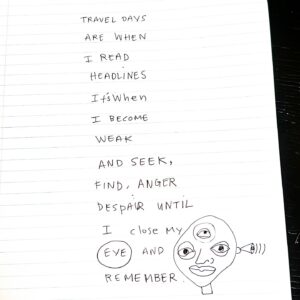 TRAVEL DAYS
ARE WHEN
I READ
HEADLINES
It's When
I BECOME
WEAK
AND SEEK,
FIND, ANGER
DESPAIR UNTIL
I close my
EYE AND
REMEMBER